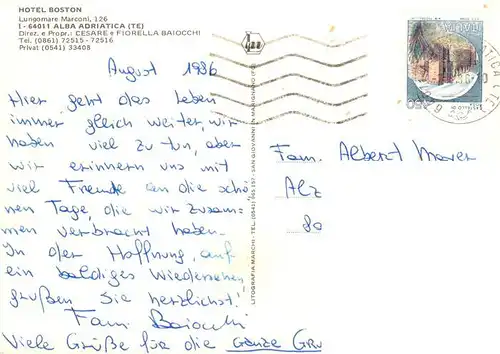 HOTEL BOSTON
Lungomare Marconi, 126
I - 64011 ALBA ADRIATICA (TE)
Direz. e Propr.: CESARE e FIORELLA BAIOCCHI
Tel. (0861) 72515 - 72516
Privat (0541) 33408
August 1986
Hier geht das Leben
immer gleich weiter, wir
haben viel zu tun, aber
wir erinnern uns mit
viel Freude an die schö
nen Tage, die wir zusam-
men verbracht haben.
In der Hoffnung, auf
ein baldiges Wiedersehen,
grüßen Sie herzlichst!
Fam Baiocchi
Viele Grüße für die ganze Gru
LITOGRAFIA MARCHI - TEL. (0541) 963.157 - SAN GIOVANNI IN MARIGNANO (FO)
Fam. Albert
Alz
80
ITALIA
450